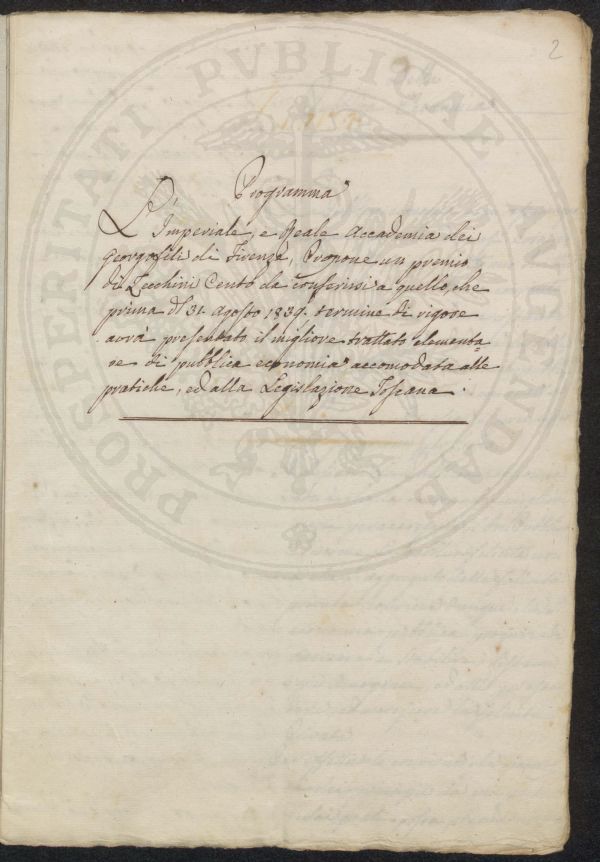 2
Programma
L'Imperiale, e Reale Accademia dei
Georgofili di Firenze, Propone un premio
di Zecchini Cento da conferirsi a quello, che
prima del 31. Agosto 1839. termine di rigore
avrà presentato il migliore trattato elementa=
re di pubblica economia accomodata alle
pratiche, ed alla Legislazione Toscana.
PROSPERITATI PVBLICAE AVGENDAE